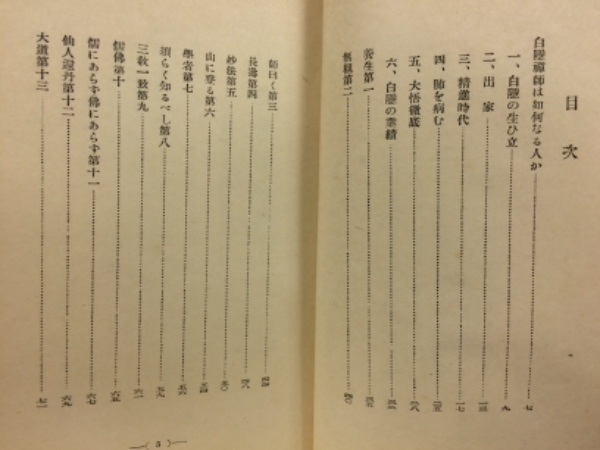 目次
白隱禪師は如何なる人か……七
一、白隱の生ひ立……九
二、出家……一三
三、精進時代……一七
四、肺を病む……二五
五、大悟徹底……二八
六、白隱の業績……三三
養生第一……三五
無義第二……四〇
師曰く第三……四四
長壽第四……四八
妙法第五……五〇
山に登る第六……五四
學者第七……五六
須らく知るべし第八……五八
三敎一致第九……六一
儒佛第十……六五
儒にあらず佛にあらず第十一……六七
仙人還丹第十二……六九
大道第十三……七一
—( 5 )—